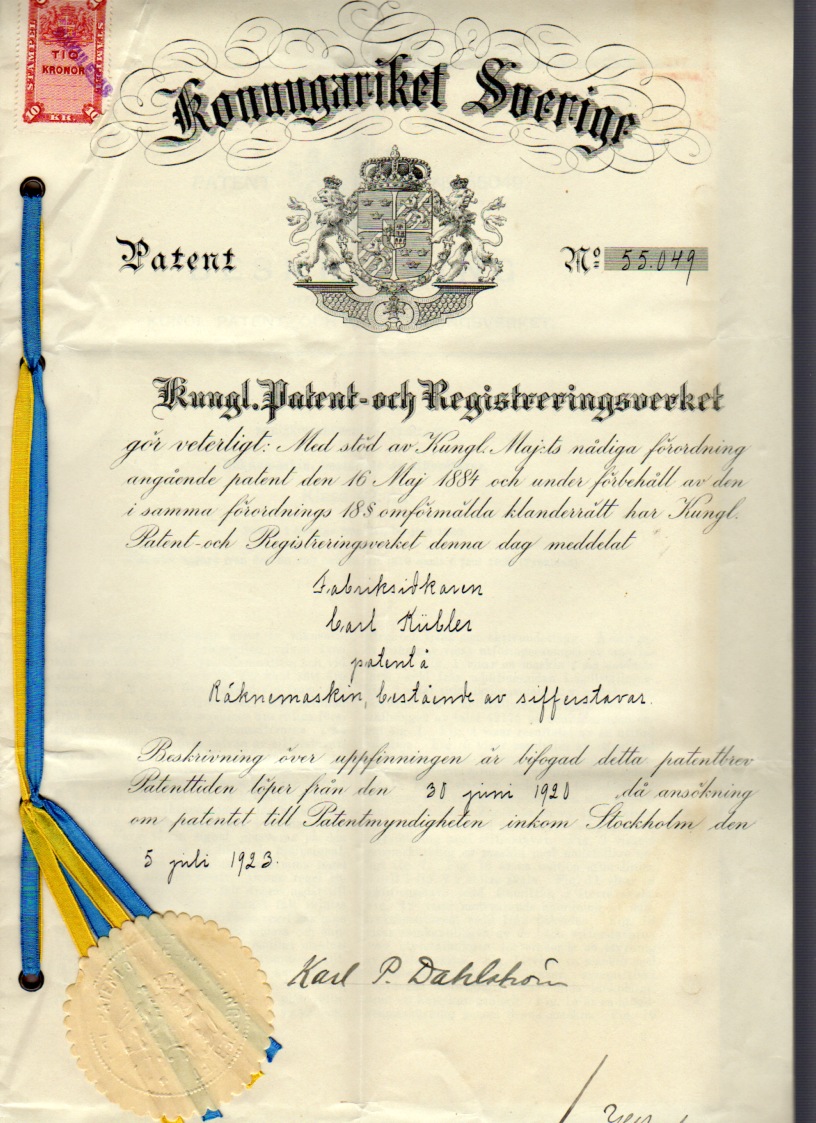 STÄMPEL
STÄMPEL
TIO
KRONOR
10 KR. 10
Konungariket Sverige
Patent
No 55.049
Kungl. Patent- och Registreringsverket
gör veterligt: Med stöd av Kungl. Maj:ts nådiga förordning
angående patent den 16 Maj 1884 och under förbehåll av den
i samma förordnings 18§ omförmälda klanderrätt har Kungl.
Patent- och Registreringsverket denna dag meddelat
Fabriksidkaren
Carl Kübler
patent å
Räknemaskin, bestående av sifferstavar.
Beskrivning över uppfinningen är bifogad detta patentbrev
Patenttiden löper från den 30 juni 1920 då ansökning
om patentet till Patentmyndigheten inkom Stockholm den
5 juli 1923.
Karl P. Dahlström